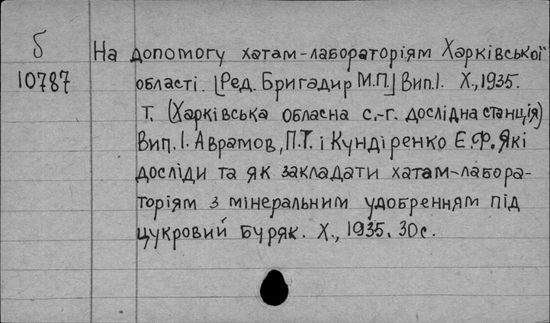 б
10787
На допомогу хатам-лабораторіям Харківської
області. [Ред. Бригадир М.П.] Вип.1. Х., 1935.
Т. (Харківська обласна с.-г. дослідна станція)
Вип.1. Аврамов, П.Т. і Кундіренко Є.Ф. Які
досліди та як закладати хатам-лабора-
торіям з мінеральним удобренням під
цукровий буряк. Х., 1935. 30с.